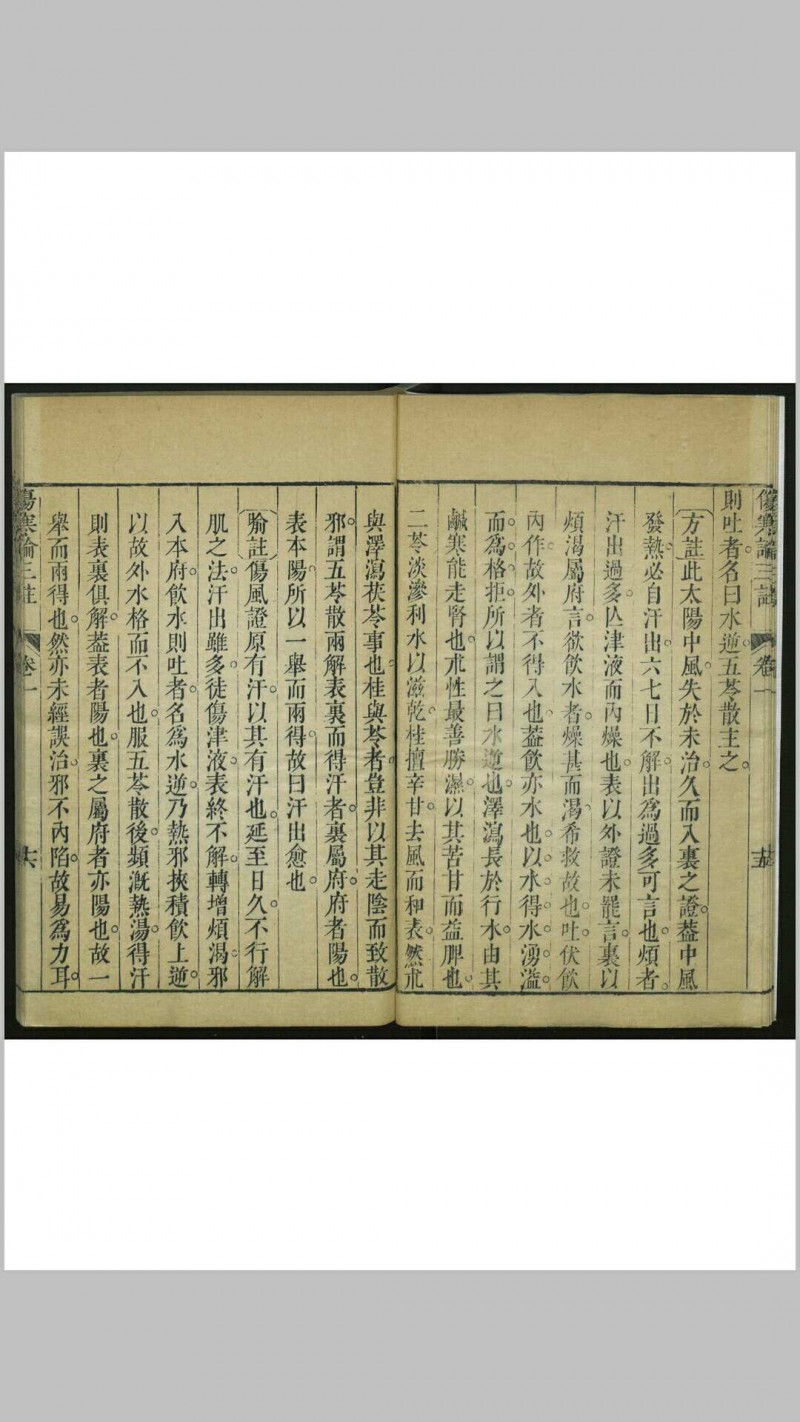 傷寒論三註 卷一 十五
則吐者名曰水逆五苓散主之。
〔方註〕此太陽中風。失於未治。久而入裏之證。葢中風
發熱。必自汗出。六七日不解。出爲過多可言也。煩者。
汗出過多。亾津液而內燥也。表以外證未罷言。裏以
煩渴屬府言。欲飲水者。燥甚而渴。希救故也。吐。伏飲
內作。故外者不得入也。葢飲亦水也。以水得水。湧溢。
而爲格拒。所以謂之曰水逆也。澤瀉長於行水。由其
鹹寒能走腎也。朮性最善勝濕。以其苦甘而益脾也。
二苓淡滲利水以滋乾。桂擅辛甘。去風而和表。然朮
與澤瀉茯苓事也。桂與苓者。豈非以其走陰而致散
邪。謂五苓散兩解表裏而得汗者。裏屬府。府者陽也。
表本陽。所以一舉而兩得。故曰汗出愈也。
〔喻註〕傷風證原有汗。以其有汗也。延至日久。不行解
肌之法。汗出雖多。徒傷津液。表終不解。轉增煩渴。邪
入本府。飲水則吐者。名爲水逆。乃熱邪挾積飲上逆。
以故外水格而不入也。服五苓散後。頻漑熱湯。得汗
則表裏俱解。葢表者陽也。裏之屬府者亦陽也。故一
舉而兩得也。然亦未經誤治。邪不內陷。故易爲力耳。
傷寒論三註 卷一 十六